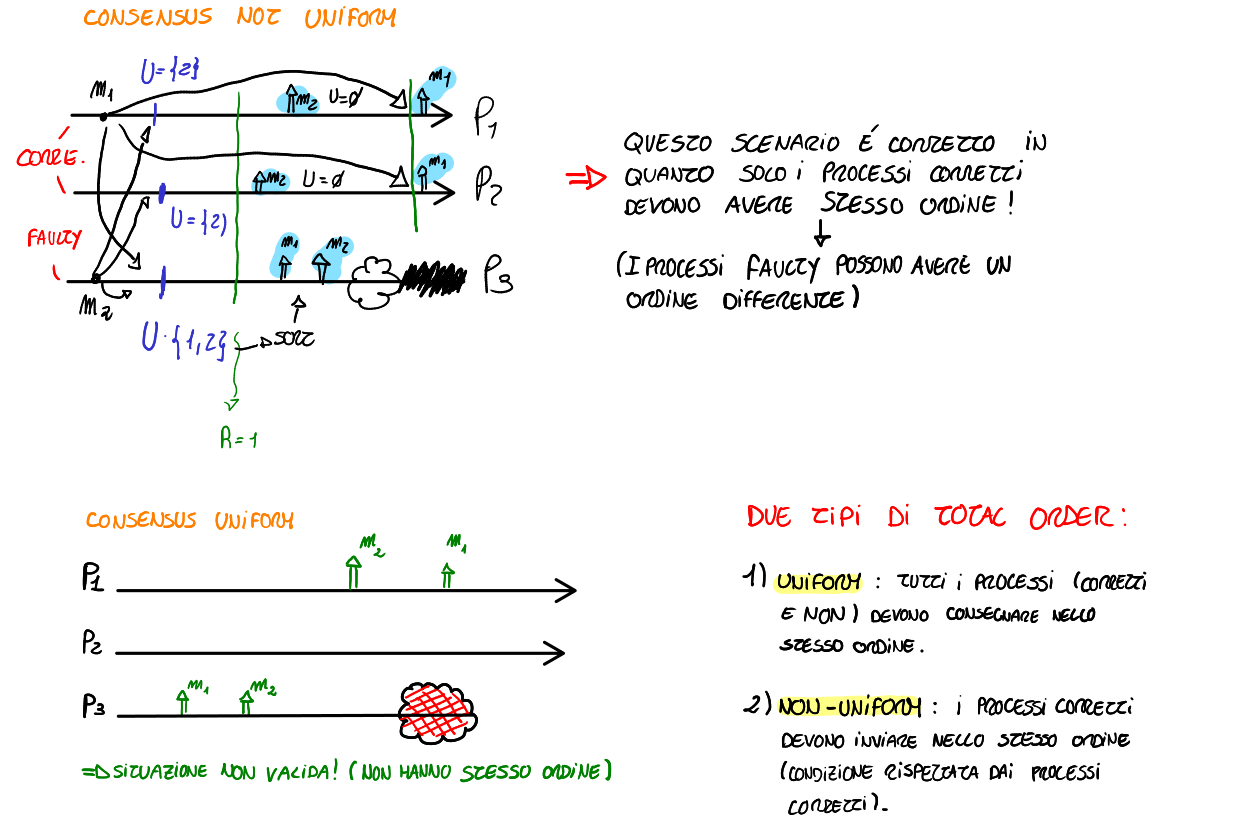 CONSENSUS NOT UNIFORM
U={2}
m1
m2
U=Ø
m1
P1
CORRE.
m2
U=Ø
m1
P2
U={2}
FAULTY
m1
m2
P3
m2
U={1,2}
SORT
R=1
QUESTO SCENARIO É CORRETTO IN
QUANTO SOLO I PROCESSI CORRETTI
DEVONO AVERE STESSO ORDINE!
(I PROCESSI FAULTY POSSONO AVERE UN
ORDINE DIFFERENTE)
CONSENSUS UNIFORM
m2
m1
P1
P2
P3
m1
m2
=> SITUAZIONE NON VALIDA! (NON HANNO STESSO ORDINE)
DUE TIPI DI TOTAL ORDER:
1) UNIFORM: TUTTI I PROCESSI (CORRETTI
E NON) DEVONO CONSEGNARE NELLO
STESSO ORDINE.
2) NON-UNIFORM: I PROCESSI CORRETTI
DEVONO INVIARE NELLO STESSO ORDINE
(CONDIZIONE RISPETTATA DAI PROCESSI
CORRETTI).